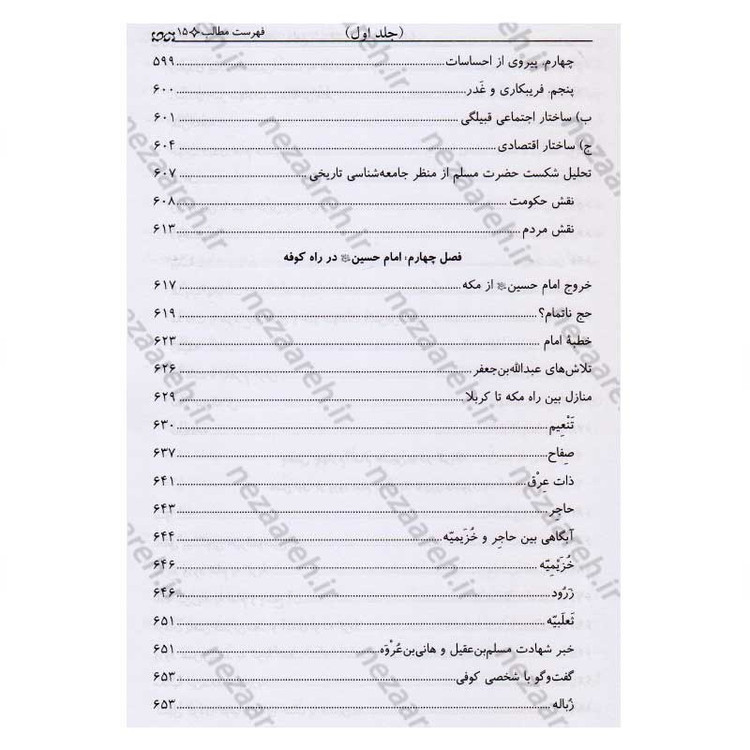 فهرست مطالب ۱۵ (جلد اول)
چهارم. پیروی از احساسات ۵۹۹
پنجم. فریبکاری و غَدر ۶۰۰
ب) ساختار اجتماعی قبیلگی ۶۰۱
ج) ساختار اقتصادی ۶۰۴
تحلیل شکست حضرت مسلم از منظر جامعه‌شناسی تاریخی ۶۰۷
نقش حکومت ۶۰۸
نقش مردم ۶۱۳
فصل چهارم: امام حسین در راه کوفه
خروج امام حسین از مکه ۶۱۷
حج ناتمام؟ ۶۱۹
خطبهٔ امام ۶۲۳
تلاش‌های عبدالله‌بن‌جعفر ۶۲۶
منازل بین راه مکه تا کربلا ۶۲۹
تَنْعِیم ۶۳۰
صِفاح ۶۳۷
ذات عِرْق ۶۴۱
حاجِر ۶۴۳
آبگاهی بین حاجِر و خُزَیمیّه ۶۴۴
خُزَیْمِیّه ۶۴۶
زَرُود ۶۴۶
ثَعلَبیّه ۶۵۱
خبر شهادت مسلم‌بن‌عقیل و هانی‌بن‌عُرْوَه ۶۵۱
گفت‌وگو با شخصی کوفی ۶۵۳
زُباله ۶۵۳
nezaareh.ir